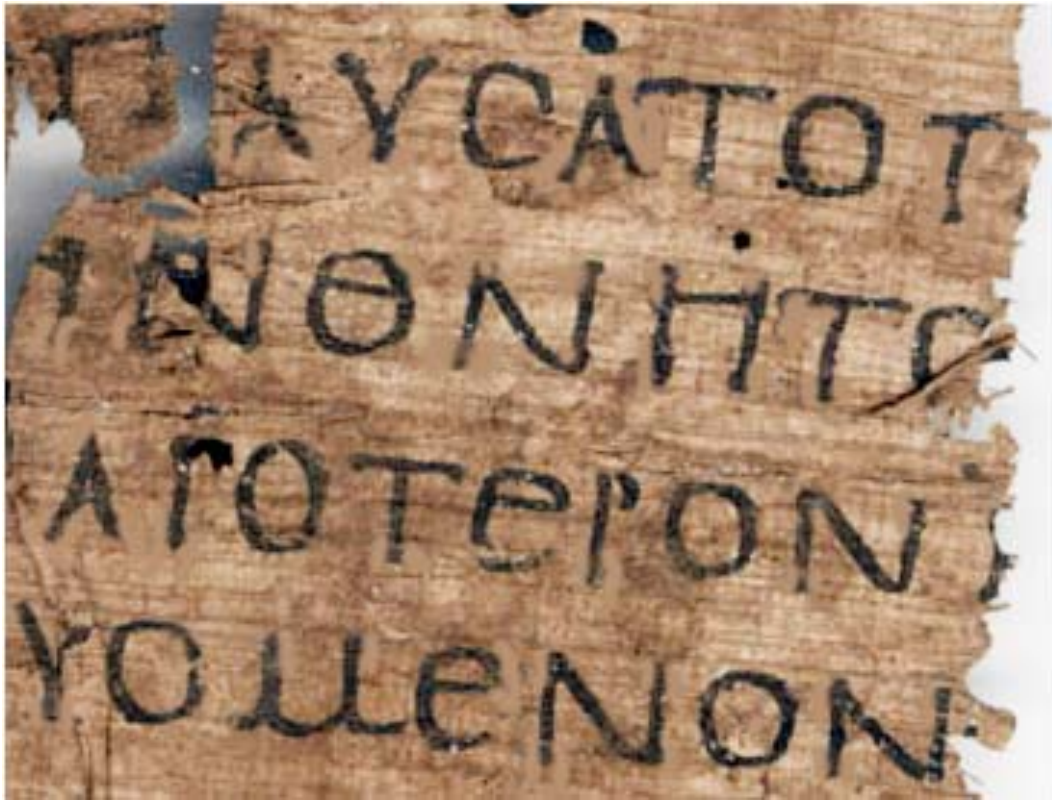 ΠΑΥCΑΤΟΤ
ΙΝΘΝΗΤΟ
ΑΓΟΤΕΡΟΝ
ΥΟΜΕΝΟΝ